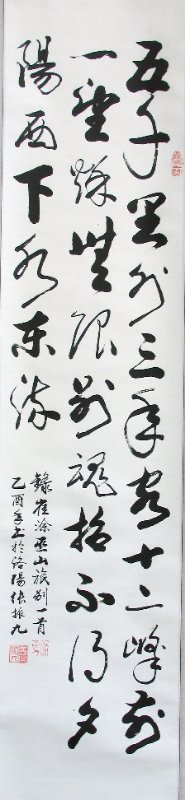 五千里外三年客十二峰前
一望秋無限别魂招不得夕
陽西下水東流
錄崔涂巫山旅别一首
乙酉年书於洛陽張振九